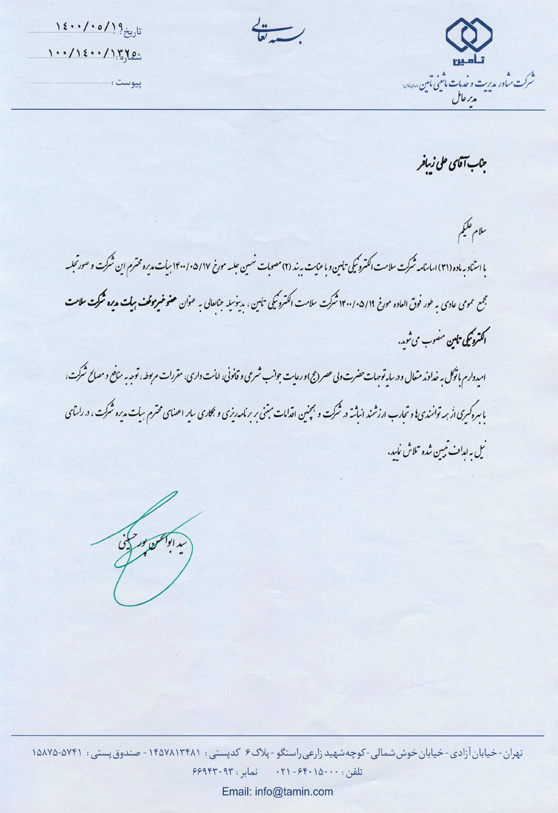 بسمه تعالی
تاریخ: ۱۴۰۰/۰۵/۱۹
شماره: ۱۰۰/۱۴۰۰/۱۳۲۵
پیوست:
تامین
شرکت مشاور مدیریت و خدمات ماشینی تامین
مدیرعامل
جناب آقای علی زیبافر
سلام علیکم
با استناد به ماده (۳۱) اساسنامه شرکت سلامت الکترونیکی تامین و با عنایت به بند (۲) مصوبات نهمین جلسه مورخ ۱۴۰۰/۰۵/۱۷ هیأت مدیره محترم این شرکت و صورتجلسه
مجمع عمومی عادی به طور فوق العاده مورخ ۱۴۰۰/۰۵/۱۹ شرکت سلامت الکترونیکی تامین ، بدینوسیله جنابعالی به عنوان عضو غیرموظف هیأت مدیره شرکت سلامت
الکترونیکی تامین منصوب می‌شوید.
امیددارم با توکل به خداوند متعال و در سایه توجهات حضرت ولی عصر (عج) و رعایت جوانب شرعی و قانونی، امانت داری، مقررات مربوط، توجه به منافع و مصالح شرکت،
با بهره‌گیری از همه توانمندی‌ها و تجارب ارزشمند انباشته در شرکت و همچنین اقدامات مبتنی بر برنامه‌ریزی و همکاری سایر اعضای محترم هیأت مدیره شرکت ، در راستای
نیل به اهداف تعیین شده تلاش نمایید.
سید ابوالحسن پورحسینی
تهران - خیابان آزادی - خیابان خوش شمالی - کوچه شهید زارعی راستگو - پلاک ۶ کدپستی : ۱۴۵۷۸۱۳۴۸۱ - صندوق پستی : ۱۵۸۷۵-۵۷۴۱
تلفن : ۶۴۰۱۵۰۰۰-۰۲۱ نمابر : ۶۶۹۴۳۰۹۲
Email: info@tamin.com